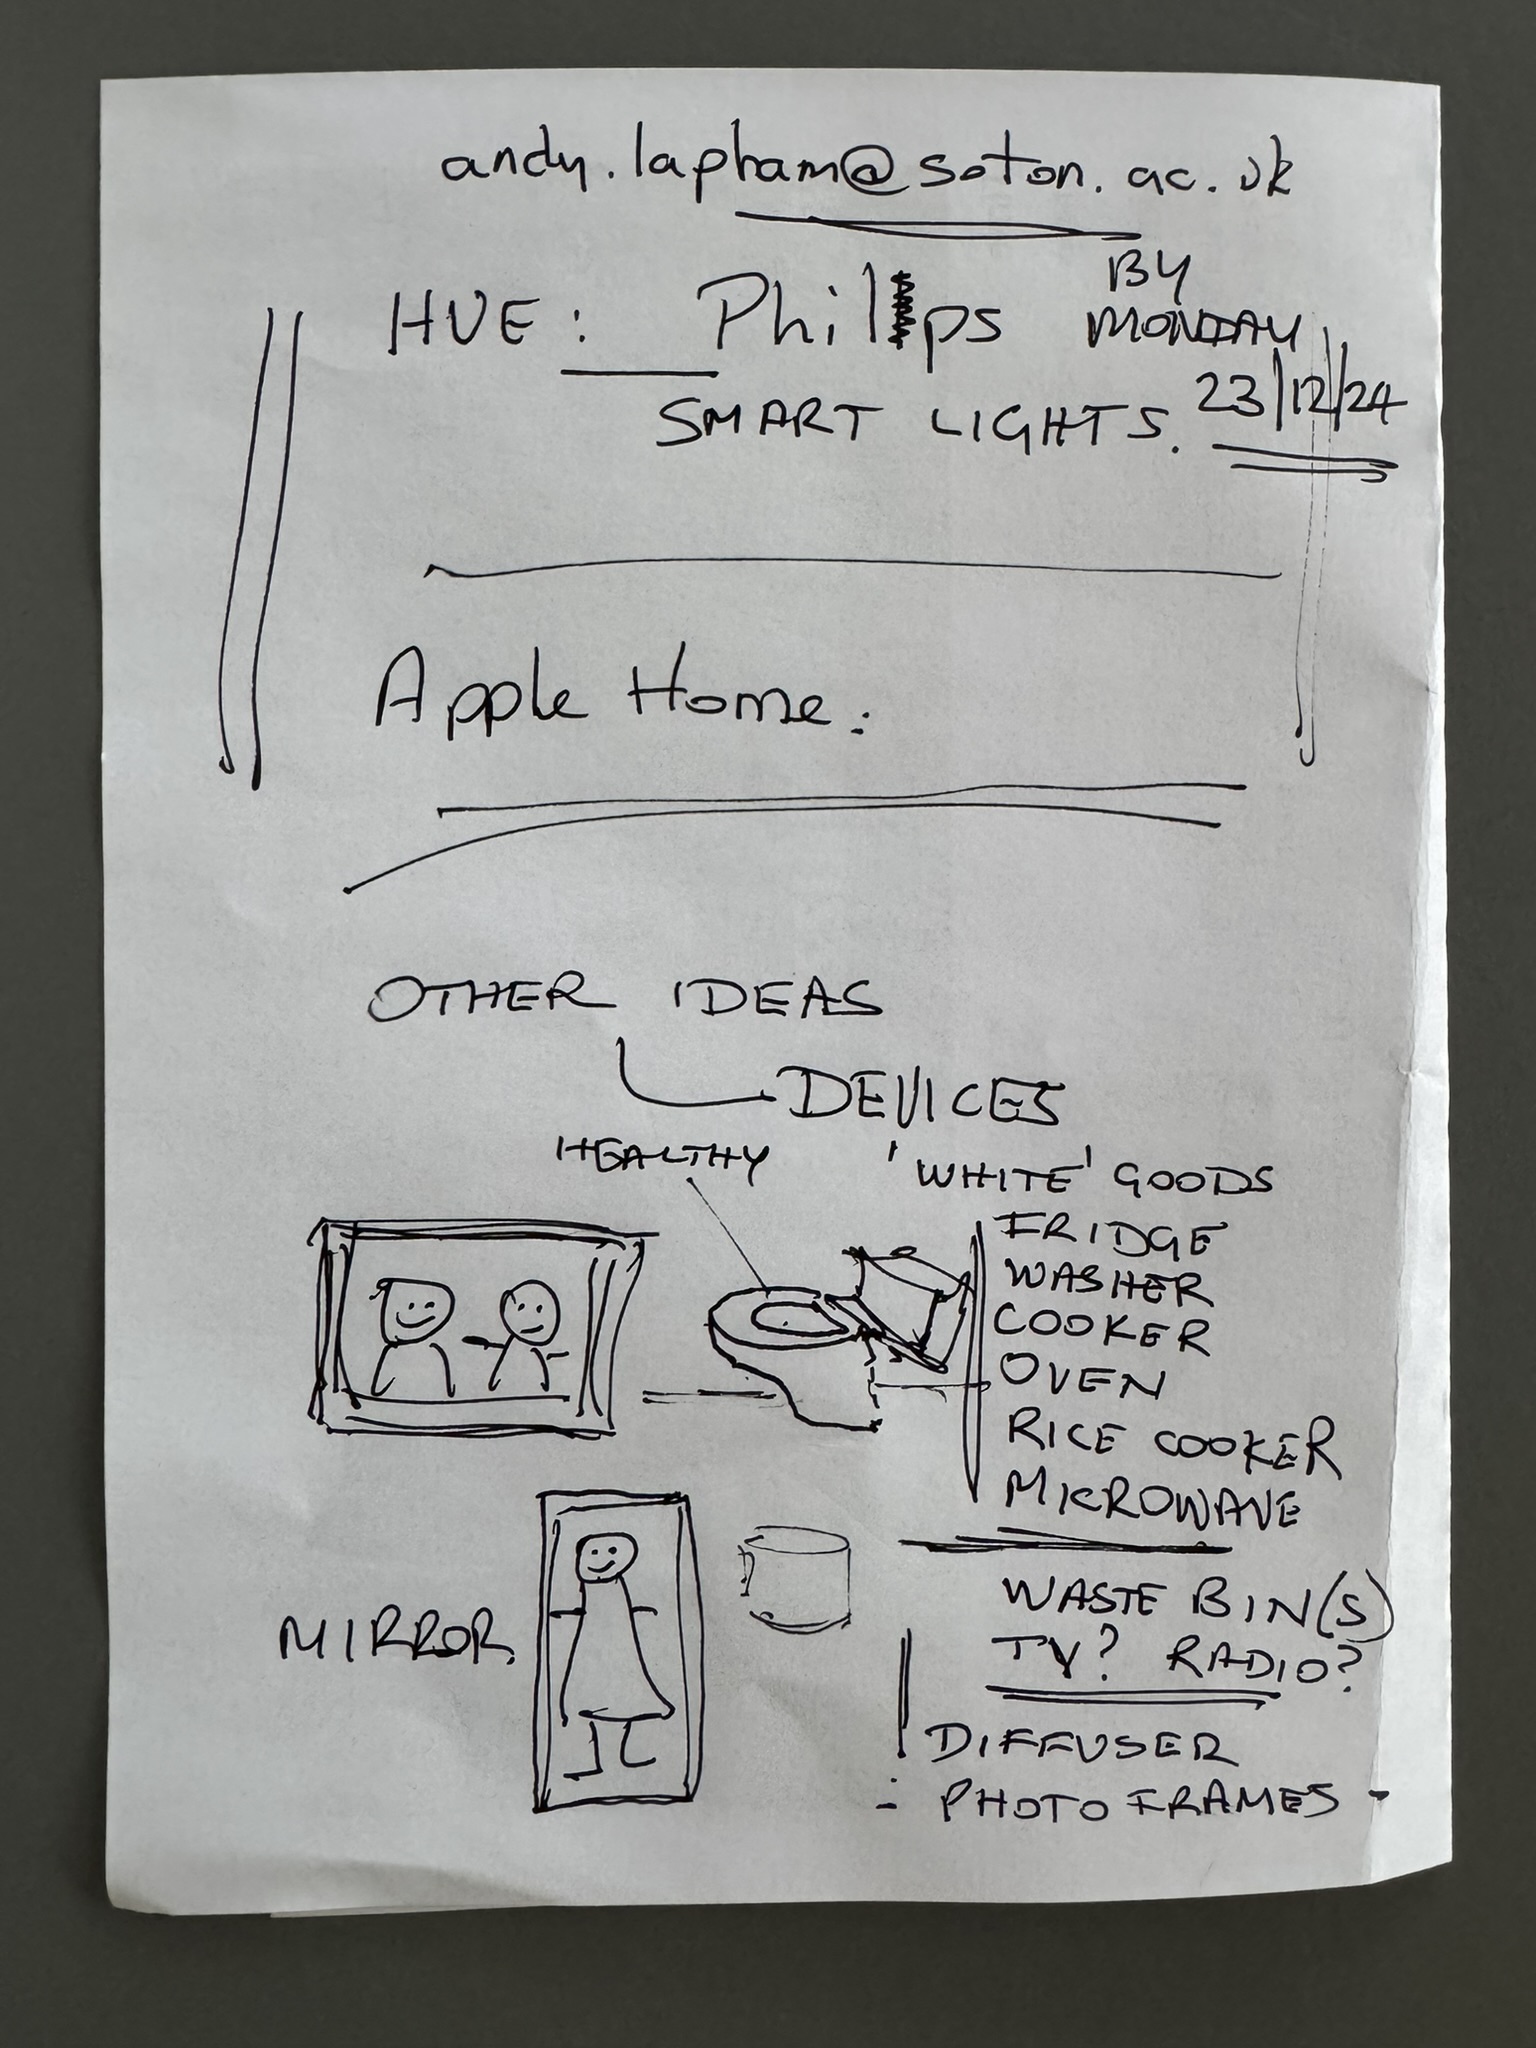 andy.lapham@soton.ac.uk
HUE: Philips
BY
MONDAY
23/12/24
SMART LIGHTS.
Apple Home:
OTHER IDEAS
DEVICES
HEALTHY
'WHITE' GOODS
FRIDGE
WASHER
COOKER
OVEN
RICE COOKER
MICROWAVE
MIRROR
WASTE BIN(S)
TV? RADIO?
DIFFUSER
- PHOTO FRAMES -